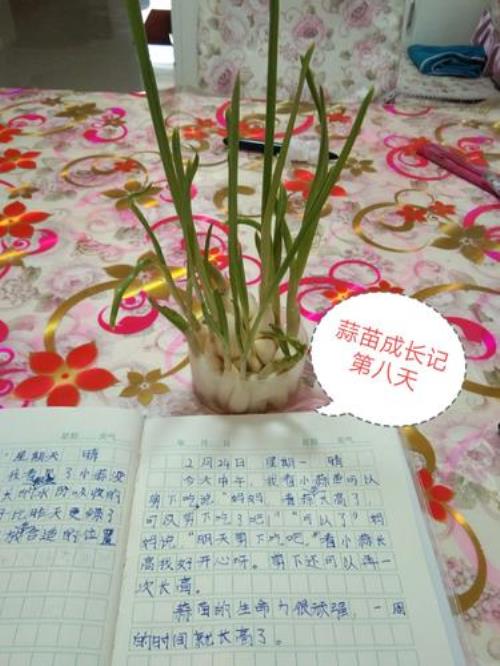 蒜苗成长记
第八天
星期天 晴
星期 天气
年 月 日 星期 天气
2月24日 星期一 晴
今天中午,我看小蒜苗可以
剪下吃说“妈妈,看蒜天高了,
可以剪下吃了吧!”“可以了”妈
妈说“明天剪下吃吧。”看小蒜长
高我好开心呀。剪下还可以再一
次长高。
蒜苗的生命力很顽强,一周
的时间就长高了。
了小蒜苗
的水份吸收的
比昨天更绿了
放合适的位置